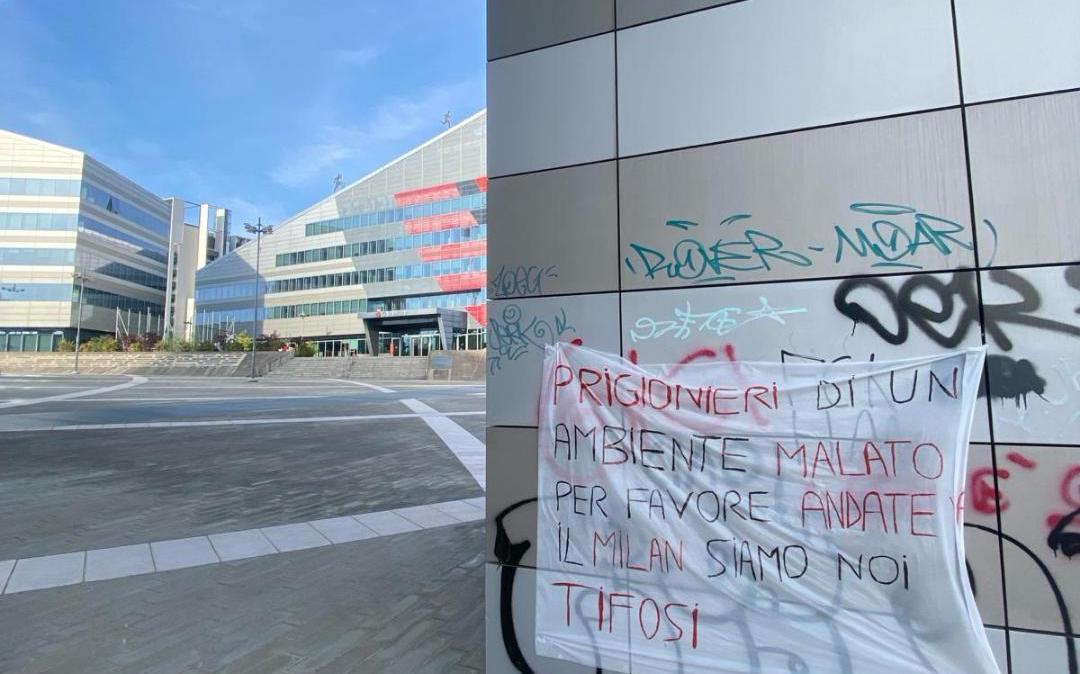 ROVER - MOAR
DER
PRIGIONIERI DI UN
AMBIENTE MALATO
PER FAVORE ANDATE
IL MILAN SIAMO NOI
TIFOSI